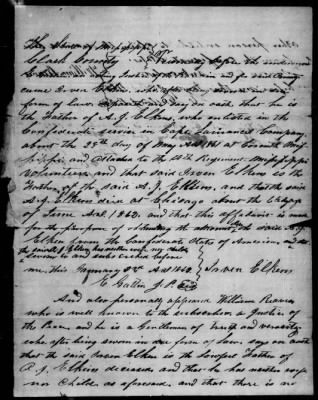 The State of Mississippi
Clark County Personally before the undersigned
acting Justice of the Peace in and for said County
came Irven Elkins, who after being sworn in due
form of law, deposeth and say on oath that he is
the Father of A. J. Elkins, who enlisted in the
Confederate service in Capt Company
about the 25th day of May Ad. 1861 at Corinth Miss
issippi and attached to the 14th Regiment Mississippi
Volunteers and that said Irven Elkins is the
Father of the said A. J. Elkins, and that the said
A. J. Elkins died at Chicago about the day
of June Ad. 1862, and that this affidavit is made
for the purpose of obtaining the amount the said A. J.
Elkins from the Confederate States of America, and that
the said A. J. Elkins has neither wife nor child
Sworn to and subscribed before
me this January 2nd Ad 1863 Irven Elkins
J. P.
And also personally appeared William
who is well known to the subscriber a Justice of
the Peace and he is a Gentleman of truth and veracity
who after being sworn in due form of law, says on oath
that the said Irven Elkins is the lawful Father of
A. J. Elkins deceased and that he has neither wife
nor Childs as aforesaid, and that there is no